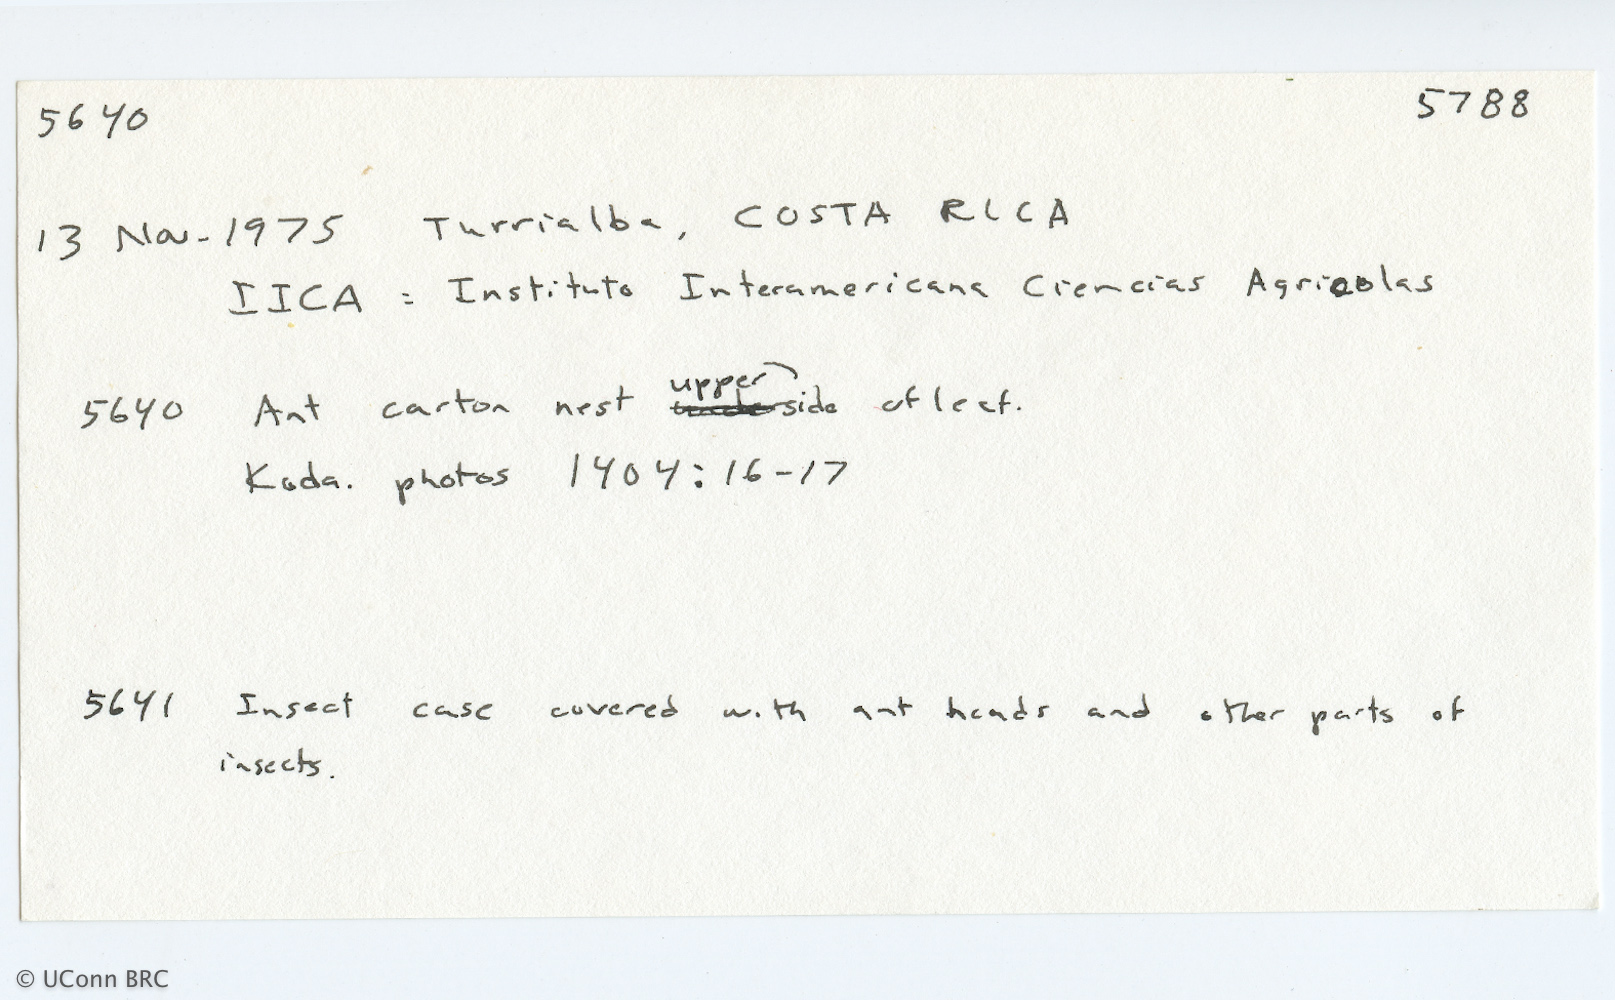 5640 5788
13 Nov. 1975 Turrialba, COSTA RICA
IICA = Instituto Interamericana Ciencias Agricolas
5640 Ant carton nest upper side of leaf.
Koda. photos 1404:16-17
5641 Insect case covered with ant heads and other parts of
insects.
© UConn BRC